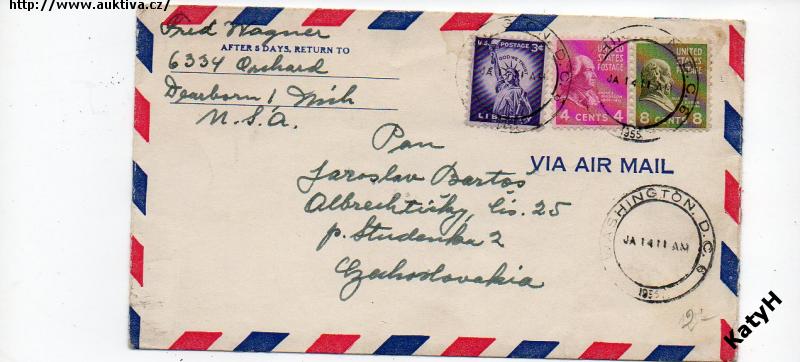 http://www.auktiva.cz/
Fred Wagner
AFTER 5 DAYS, RETURN TO
6334 Orchard
Dearborn 1 Mich
U.S.A.
U.S. POSTAGE 3¢
LIBERTY
UNITED STATES POSTAGE
4 CENTS 4
UNITED STATES POSTAGE
8 CENTS 8
JA 14 11 AM
1955
VIA AIR MAIL
Pan
Jaroslav Bartoš
Albrechtičky, čís. 25
p. Studenka 2
Czechoslovakia
WASHINGTON, D.C. 6
JA 14 11 AM
1955
KatyH